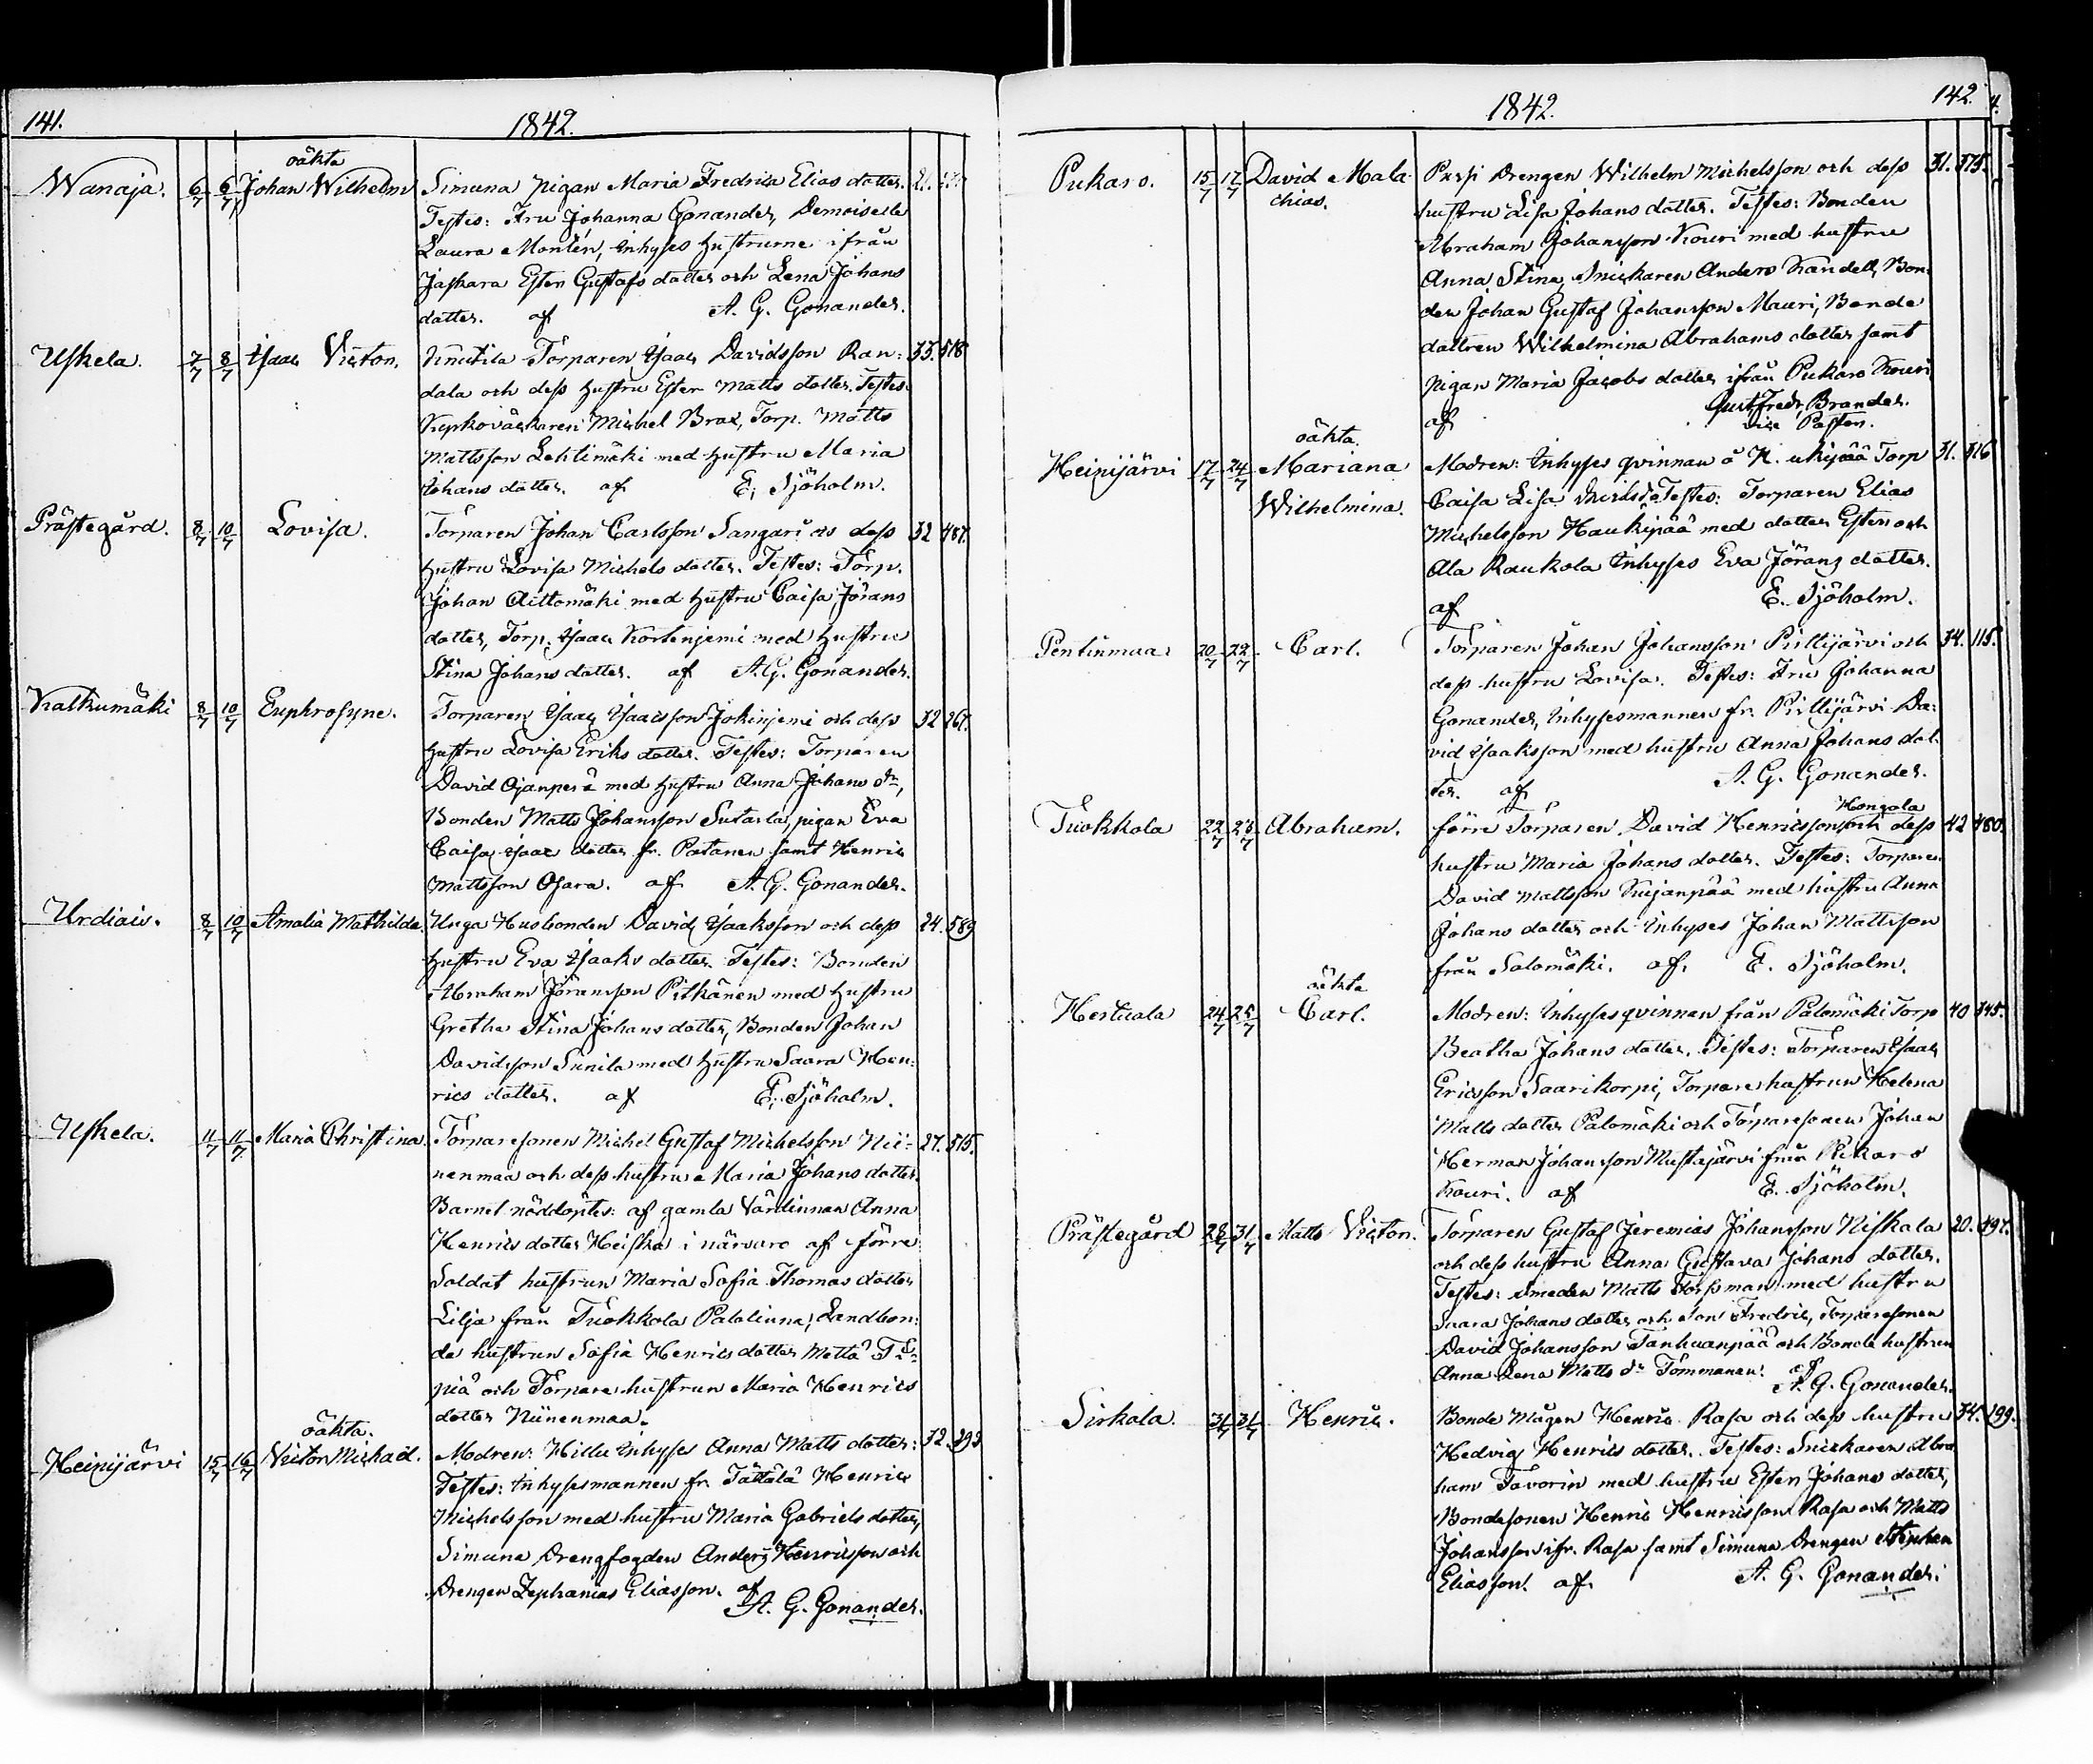 141.
1842.
Wanaja. 6/7 6/7 oäkta Johan Wilhelm
Simuna pigan Maria Fredrica Elias dotter. 21.
Testes: Fru Johanna Gonander, Demoiselle
Laura Montén, Inhyses Hustrurne ifrån
Jaskara Ester Gustafs dotter och Lena Johans
dotter. af A. G. Gonander.
Uskela. 7/7 8/7 Isaac Victor.
Knutila Torparen Isaac Davidsson Ran: 33. 518
dala och dess Hustru Ester Matts dotter. Testes:
Michel Brax, Torp. Matts
Mattsson Lehtimäki med Hustru Maria
Johans dotter. af E. Sjöholm.
Prästegård. 8/7 10/7 Lovisa.
Torparen Johan Carlsson Sangari o. dess 32 487.
Hustru Lovisa Michels dotter. Testes: Torp.
Johan Aittomäki med Hustru Caisa Jörans
dotter, Torp. Isaac Kortenjemi med Hustru
Stina Johans dotter. af A. G. Gonander.
Kalkumäki 8/7 10/7 Euphrosyne.
Torparen Isaac Isacsson Jokinjemi och dess 32 267.
Hustru Lovisa Eriks dotter. Testes: Torparen
David Ojanperä med Hustru Anna Johans dr,
Bonden Matts Johansson Sutarla, pigan Eva
Caisa Isaac dotter fr. Patanen samt Henric
Mattsson Osara. af A. G. Gonander.
Urdiain. 8/7 10/7 Amalia Mathilda.
Unga Husbonden David Isaaksson och dess 24. 589
Hustru Eva Isaaks dotter. Testes: Bonden
Abraham Jöransson Pitkänen med Hustru
Gretha Stina Johans dotter, Bonden Johan
Davidsson Sunila med Hustru Saara Hen:
rics dotter. af E. Sjöholm.
Uskela. 11/7 11/7 Maria Christina.
Torparesonen Michel Gustaf Michelsson Nii: 27. 515.
nenmaa och dess hustru Maria Johans dotter.
Barnet nöddöptes: af gamla Värdinnan Anna
Henrics dotter Heiska i närvaro af förre
Soldat hustrun Maria Sofia Thomas dotter
Lilja från Tuokkola Palolinna, Landbon:
de hustrun Sofia Henrics dotter
och Torpare hustrun Maria Henrics
dotter Niinenmaa.
Heinijärvi 15/7 16/7 oäkta. Victor Michael.
Modren: Hillu Inhyses Anna Matts dotter: 32. 293
Testes: Inhysesmannen fr. Tättälä Henric
Michelsson med hustru Maria Gabriels dotter,
Simuna Drengfogden Anders Henricsson och
Drengen Zephanias Eliasson. af
A. G. Gonander.
1842.
142.
Pukaro. 15/7 17/7 David Mala-
chias.
Pursi Drengen Wilhelm Michelsson och dess 31. 375.
hustru Lisa Johans dotter. Testes: Bonden
Abraham Johansson Kouri med hustru
Anna Stina, Snickaren Anders Kandell, Bon-
den Johan Gustaf Johansson Mauri, Bonde
dottren Wilhelmina Abrahams dotter samt
pigan Maria Jacobs dotter ifrån Pukaro Kouri
af Gust. Fredr. Brander.
vice Pastor.
Heinijärvi 17/7 24/7 oäkta. Mariana
Wilhelmina.
Modren: Inhyses qvinnan å Torp 31. 316
Caisa Lisa Testes: Torparen Elias
Michelsson Haukipää med dotter Ester och
Ala Raukola Inhyses Eva Jörans dotter.
af E. Sjöholm.
Pentinmaa: 20/7 22/7 Carl.
Torparen Johan Johansson Pirttijärvi och 34. 115.
dess hustru Lovisa. Testes: Fru Johanna
Gonander, Inhysesmannen fr. Pirttijärvi Da:
vid Isaaksson med hustru Anna Johans dot-
ter. af A. G. Gonander.
Tuokkola 22/7 23/7 Abraham.
Hongola
förre Torparen David Henricsson och dess 42 480.
hustru Maria Johans dotter. Testes: Torparen
David Mattsson Kujanpää med hustru Anna
Johans dotter och Inhyses Johan Mattsson
från Salomäki. af. E. Sjöholm.
Hertuala 24/7 25/7 oäkta Carl.
Modren: Inhyses qvinnan från Palomäki Torp 40 345.
Beatha Johans dotter. Testes: Torparen Isaac
Ericsson Saarikorpi, Torpare hustrun Helena
Matts dotter Palomäki och Torparesonen Johan
Herman Johansson Mustajärvi från Pukaro
Kouri. af E. Sjöholm.
Prästegård 28/7 31/7 Matts Victor.
Torparen Gustaf Jeremias Johansson Niskala 20. 497.
och dess hustru Anna Gustava Johans dotter.
Testes: Smeden Matts Forssman med hustru
Saara Johans dotter och Son Fredric, Torparesonen
David Johansson Tanhuanpää och Bonde hustrun
Anna Lena Matts dr Tommanen. af
A. G. Gonander.
Sirkola. 31/7 31/7 Henric.
Bonde Mågen Henric Rasa och dess hustru 34. 199.
Hedvig Henrics dotter. Testes: Snickaren Abra
ham Tavorin med hustru Ester Johans dotter,
Bondesonen Henric Henricsson Rasa och Matts
Johansson ifr. Rasa samt Simuna Drengen Stephan
Eliasson. af. A. G. Gonander.